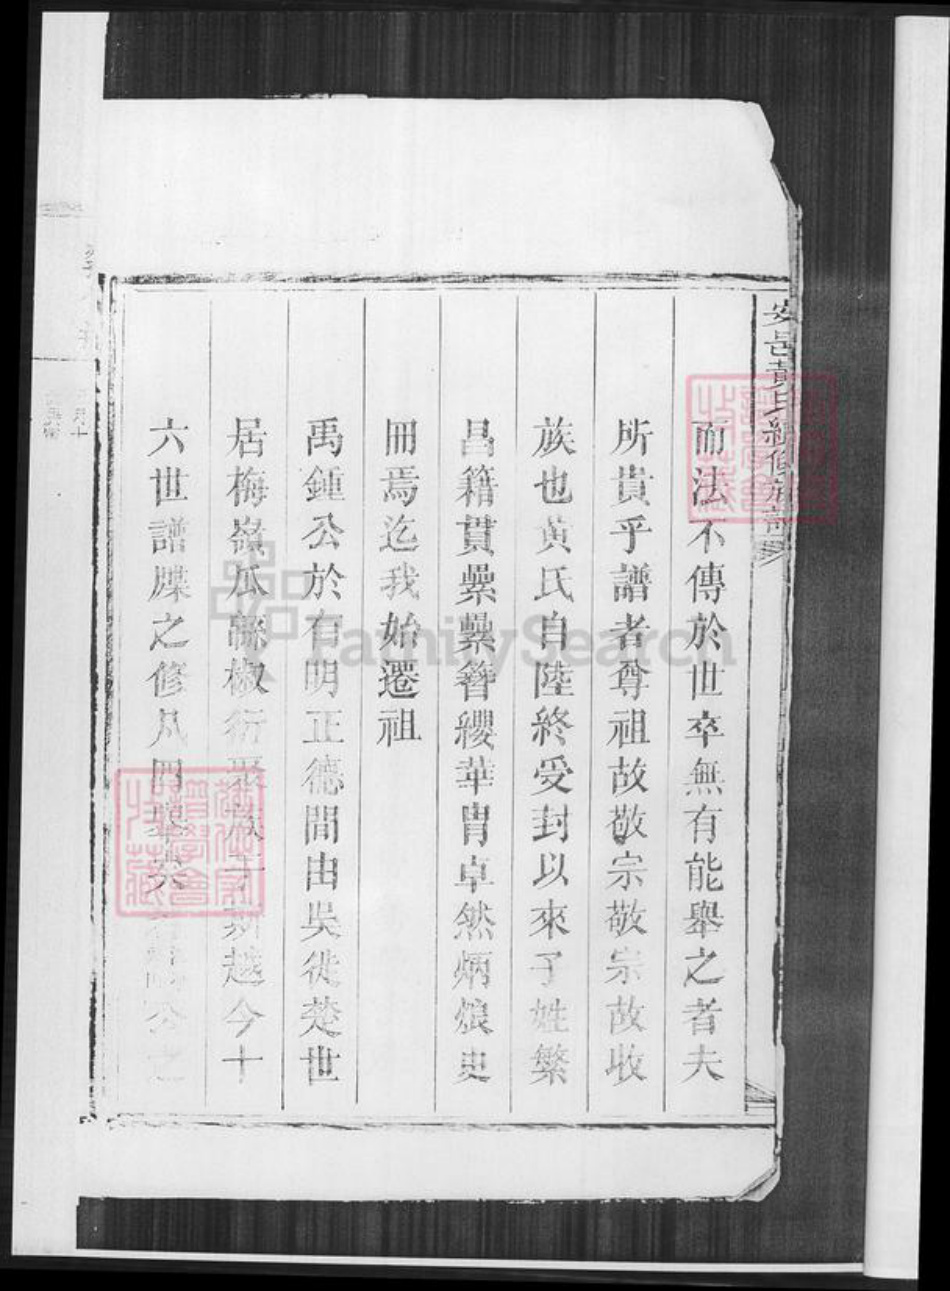 安邑黃氏續修族譜
而法不傳於世卒無有能舉之者夫
所貴乎譜者尊祖故敬宗敬宗故收
族也黃氏自陸終受封以來子姓繁
昌籍貫纍纍簪纓華冑卓然炳烺史
冊焉迄我始遷祖
禹鍾公於有明正德間由吳徙楚世
居梅嶺瓜綿椒衍聚族于斯越今十
六世譜牒之修凡四舉矣
FamilySearch